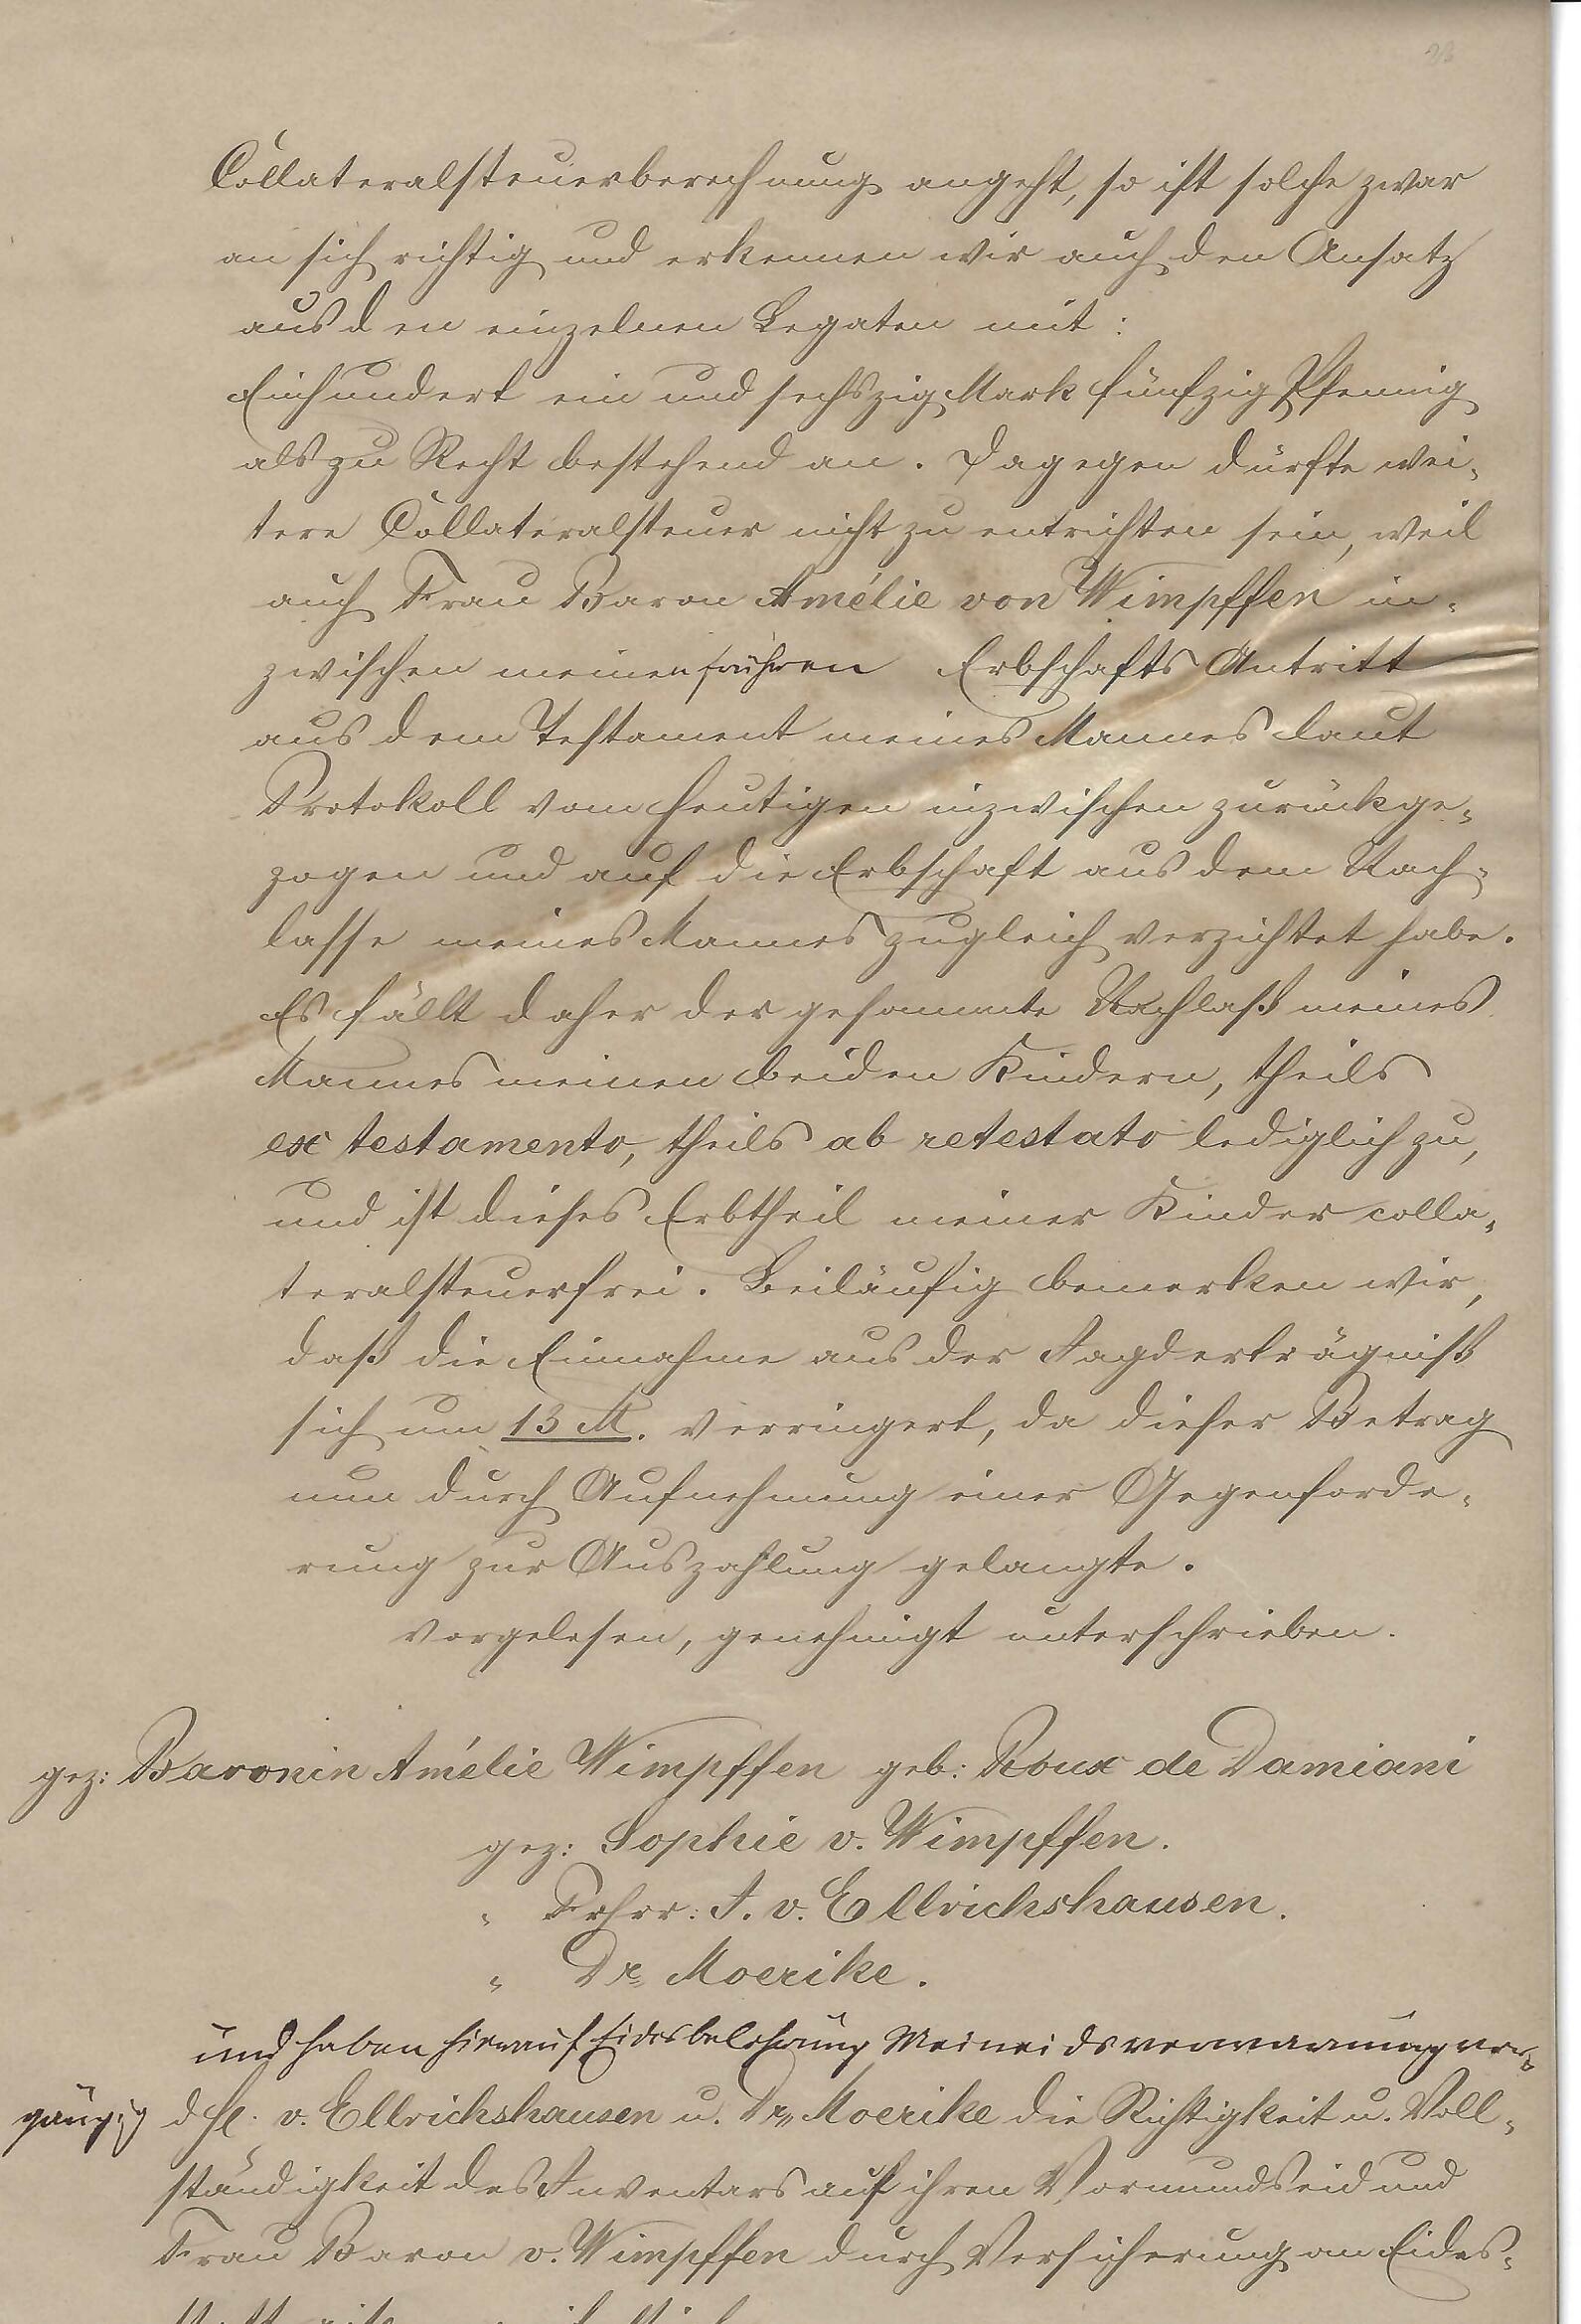 Collateralsteuerberechnung angeht, so ist solche zwar
an sich richtig und erkennen wir auch den Ansatz
aus den einzelnen Legaten mit:
Einhundert ein und sechszig Mark fünfzig Pfennig
als zu Recht bestehend an. Dagegen dürfte wei-
tere Collateralsteuer nicht zu entrichten sein, weil
auch Frau Baron Amélie von Wimpffen in-
zwischen meinen früheren Erbschafts Antritt
aus dem Testament meines Mannes laut
Protokoll vom heutigen inzwischen zurückge-
zogen und auf die Erbschaft aus dem Nach-
lasse meines Mannes zugleich verzichtet habe.
Es fällt daher der gesammte Nachlaß meines
Mannes meinen beiden Kindern, theils
ex testamento, theils ab retestato lediglich zu,
und ist dieses Erbtheil meiner Kinder colla-
teralsteuerfrei. Beiläufig bemerken wir,
daß die Einnahme aus der Jagderträgniß
sich um 13 M. verringert, da dieser Betrag
nun durch Aufnehmung einer Gegenforde-
rung zur Auszahlung gelangte.
vorgelesen, genehmigt unterschrieben.
gez: Baronin Amélie Wimpffen geb: Roux de Damiani
gez: Sophie v. Wimpffen.
" Frhrr: F. v. Ellrichshausen.
" Dr. Moerike.
und haben hierauf Eidesbelehrung Meineidsverwarnung vor-
gängig d H. v. Ellrichshausen u. Dr. Moerike die Richtigkeit u. Voll-
ständigkeit des Inventars auf ihren Vormundseid und
Frau Baron v. Wimpffen durch Versicherung an Eides-